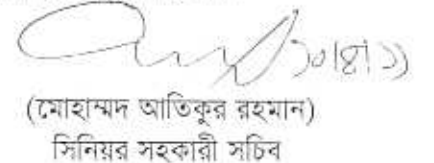 ১০|৪|১১
(মোহাম্মদ আতিকুর রহমান)
সিনিয়র সহকারী সচিব